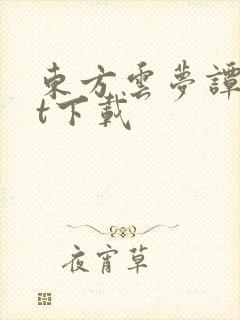 東方雲夢譚
t下載
夜宵草